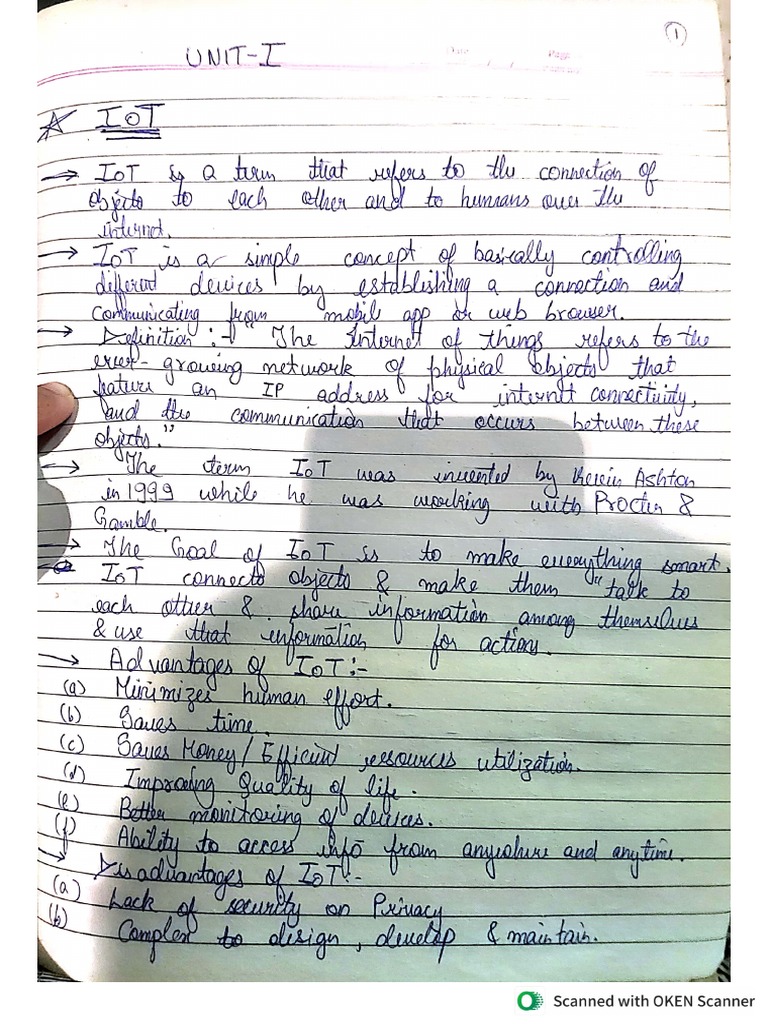 1
UNIT-I
Date / / Page
☆ IOT
→ IOT is a term that refers to the connection of
objects to each other and to humans over the
internet.
→ IOT is a simple concept of basically controlling
different devices by establishing a connection and
communicating from mobil app or web browser.
→ Definition :- "The Internet of things refers to the
ever-growing network of physical objects that
feature an IP address for internet connectivity,
and the communication that occurs between these
objects."
→ The term IOT was invented by Kevin Ashton
in 1999 while he was working with Procter &
Gamble.
→ The Goal of IOT is to make everything smart.
IOT connects objects & make them "talk to
each other & share information among themselves
& use that information for actions.
→ Advantages of IOT:-
(a) Minimizes human effort.
(b) Saves time
(c) Saves Money / Efficient ressources utilization.
(d) Improving Quality of life.
(e) Better monitoring of devices.
(f) Ability to access info from anywhere and anytime.
→ Disadvantages of IOT:-
(a) Lack of security or Privacy
(b) Complex to design, develop & maintain.
Scanned with OKEN Scanner